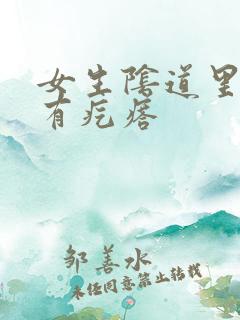 女生陰道里
有疙瘩
邹善水
未经同意禁止转载